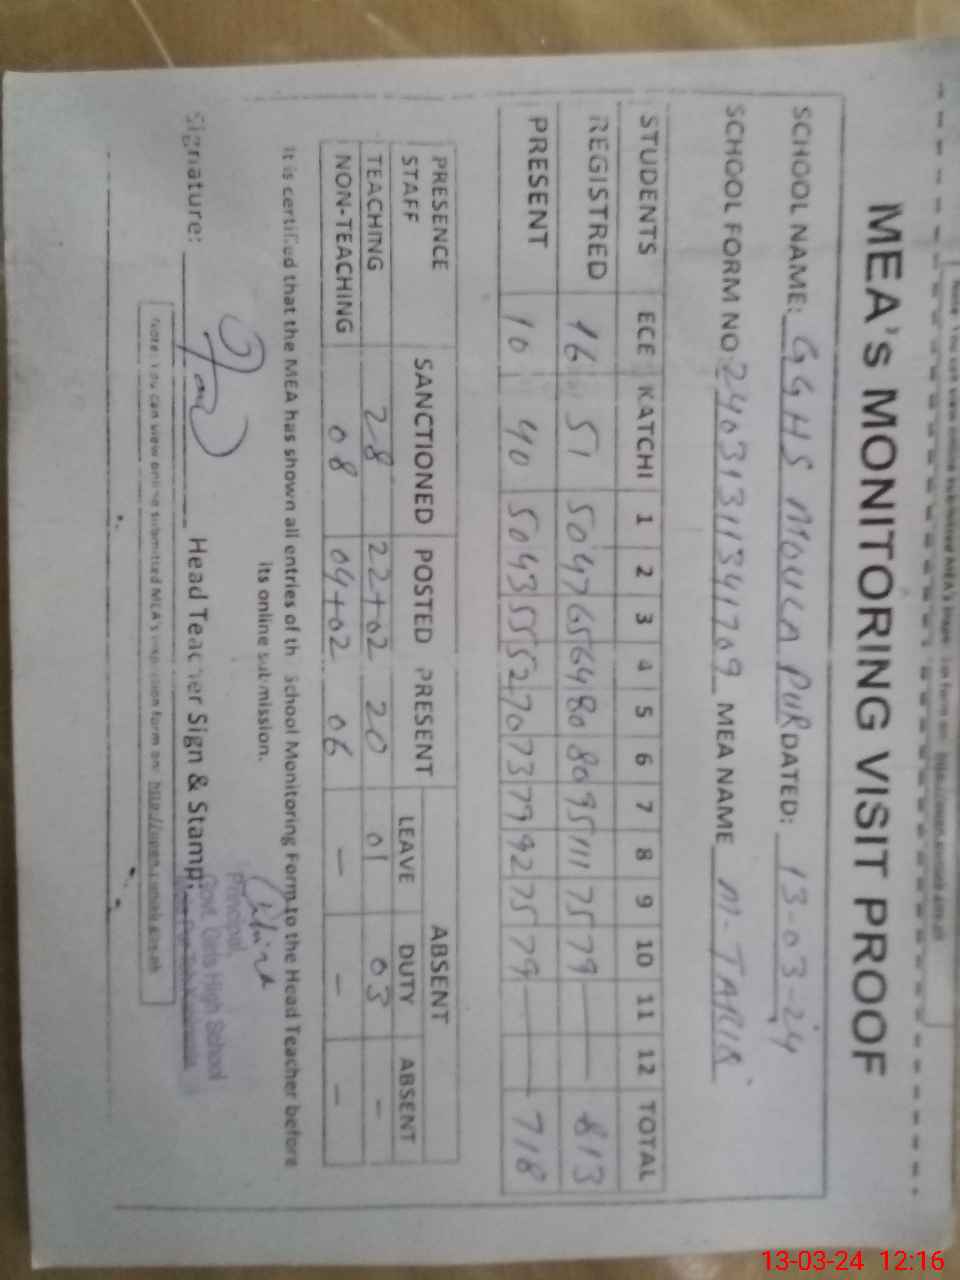 MEA's MONITORING VISIT PROOF
SCHOOL NAME: GGHS MOULA PUR DATED: 13-03-24
SCHOOL FORM NO. MEA NAME M-TARIQ
STUDENTS ECE KATCHI 1 2 3 4 5 6 7 8 9 10 11 12 TOTAL
REGISTRED 16 51 50 47 65 64 80 80 95 111 75 79 — — 813
PRESENT 10 40 50 43 55 52 70 73 79 92 75 79 — — 718
PRESENCE STAFF SANCTIONED POSTED PRESENT ABSENT
LEAVE DUTY ABSENT
TEACHING 28 22+02 20 01 03 -
NON-TEACHING 08 04+02 06 - - -
It is certified that the MEA has shown all entries of th School Monitoring Form to the Head Teacher before
its online submission.
Signature: Head Teacher Sign & Stamp:
Principal
Govt. Girls High School
Note: You can view online submitted MEA's form on:
13-03-24 12:16